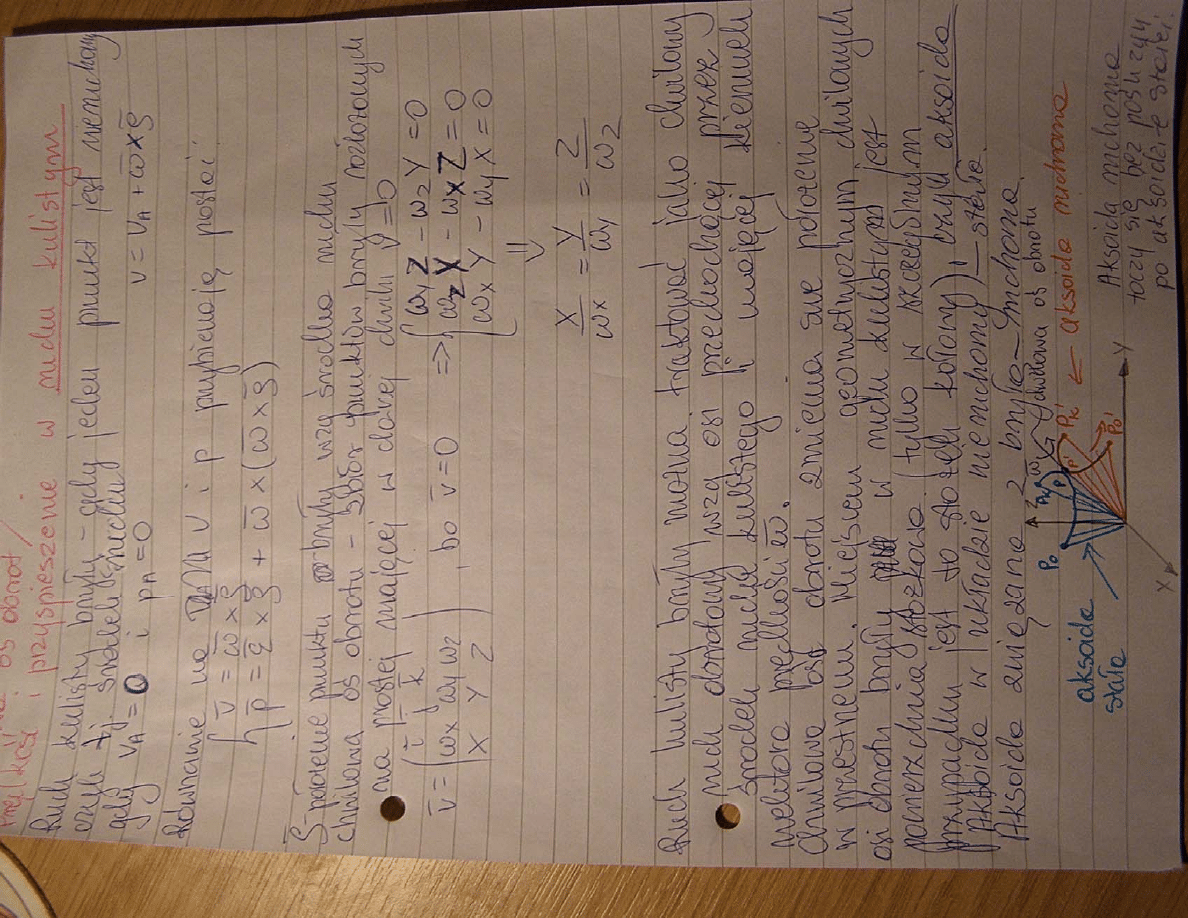 oś obrot/
i przyspieszenie w ruchu kulistym
Ruch kulisty bryły - gdy jeden punkt jest nieruchomy
czyli tzj. środek ruchu v = vA + ω̄ x ρ̄
gdy vA = 0 i pA = 0
Równanie na v i p przybierają postać:
{ v̄ = ω̄ x ρ̄
p̄ = ε̄ x ρ̄ + ω̄ x (ω̄ x ρ̄)
ρ̄ - położenie punktu bryły wzg środka ruchu
chwilowa oś obrotu - zbiór punktów bryły rozłożonych
na prostej mającej w danej chwili v̄ = 0
v̄ = | ī j̄ k̄ | , bo v̄ = 0 => { ωy Z - ωz Y = 0
| ωx ωy ωz | ωz X - ωx Z = 0
| X Y Z | ωx Y - ωy X = 0
⇓
X/ωx = Y/ωy = Z/ωz
Ruch kulisty bryły można traktować jako chwilowy
ruch obrotowy wzg osi przechodzącej przez
środek ruchu kulistego i mającej kierunek
wektora prędkości ω̄.
Chwilowa oś obrotu zmienia swe położenie
w przestrzeni. Miejscem geometrycznym chwilowych
osi obrotu bryły w ruchu kulistym jest
powierzchnia stożkowa (tylko w szczególnym
przypadku jest to stożek kołowy) czyli aksoida
Aksoida w układzie nieruchomym - stała.
Aksoida związana z bryłą - ruchoma.
chwilowa oś obrotu
aksoida
stała
P0 Pk P' P0' Pk' ω̄ Z
X Y
← aksoida ruchoma
Aksoida ruchoma
toczy się bez poślizgu
po aksoidzie stałej.